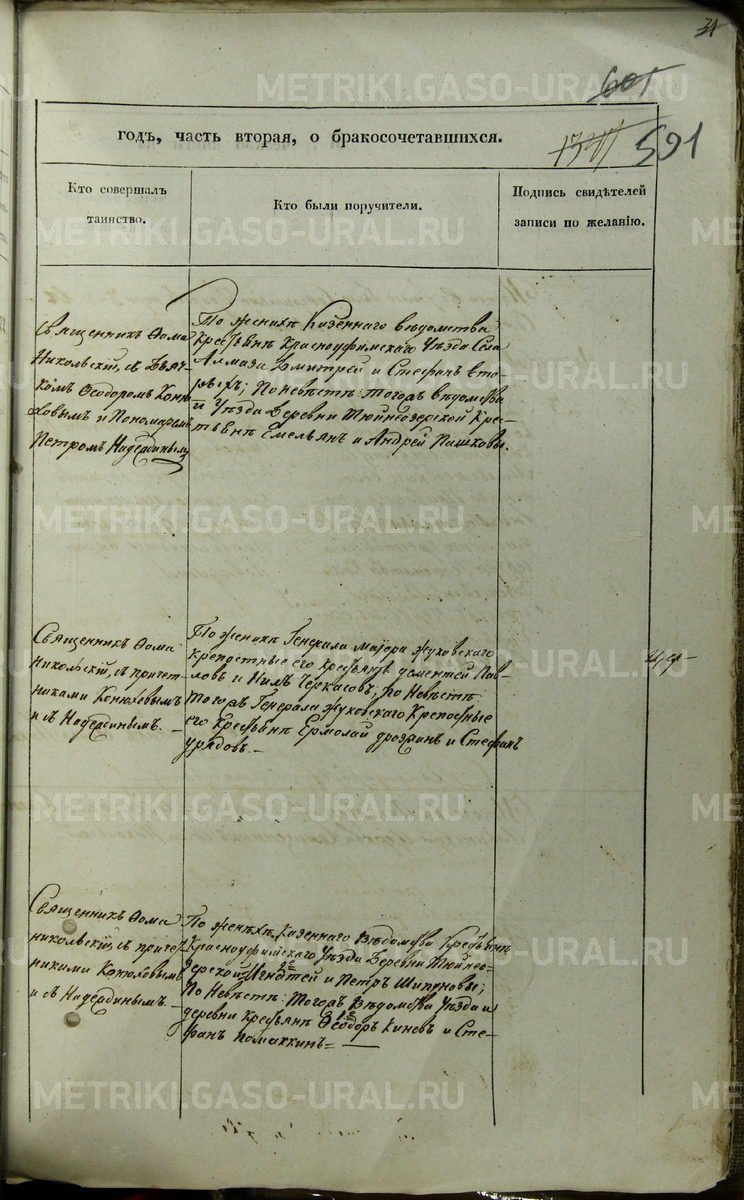 31
601
591
годъ, часть вторая, о бракосочетавшихся.
Кто совершалъ
таинство.
Кто были поручители.
Подпись свидѣтелей
записи по желанію.
Священникъ Ѳома
Никольскій, съ Дьяч-
комъ Ѳеодоромъ Коню-
ховымъ и Пономаремъ
Петромъ Надеждинымъ
По женихѣ Казеннаго вѣдомства
Крестьянѣ Красноуфимскаго Уѣзда Села
Алмаза Димитрей и Стефанъ
По невѣстѣ: тогожъ вѣдомства
и Уѣзда Деревни Тюйноозерской Кре-
стьянѣ Емельянъ и Андрей Пашковы.
Священникъ Ѳома
Никольскій, съ причет-
никами Конюховымъ
и съ Надеждинымъ. –
По женихѣ Генерала Маіора Жуховскаго
крепостные его крестьянѣ Дементей Пав-
ловъ и Нилъ Черкасовъ; по Невѣстѣ
тогожъ Генерала Жуховскаго Крепостные
его Крестьянѣ Ермолай Дрозжинъ и Стефанъ
Урядовъ. –
Священникъ Ѳома
Никольскій, съ причет-
никами Конюховымъ
и съ Надеждинымъ. –
По женихѣ Казеннаго Вѣдомства Крестьянѣ
Красноуфимскаго Уѣзда Деревни Тюйноо-
зерской Игнатей и Петръ Шипуновы;
По Невѣстѣ: Тогожъ Вѣдомства Уѣзда и
деревни Крестьянѣ Ѳеодоръ Киневъ и Сте-
фанъ
METRIKI.GASO-URAL.RU